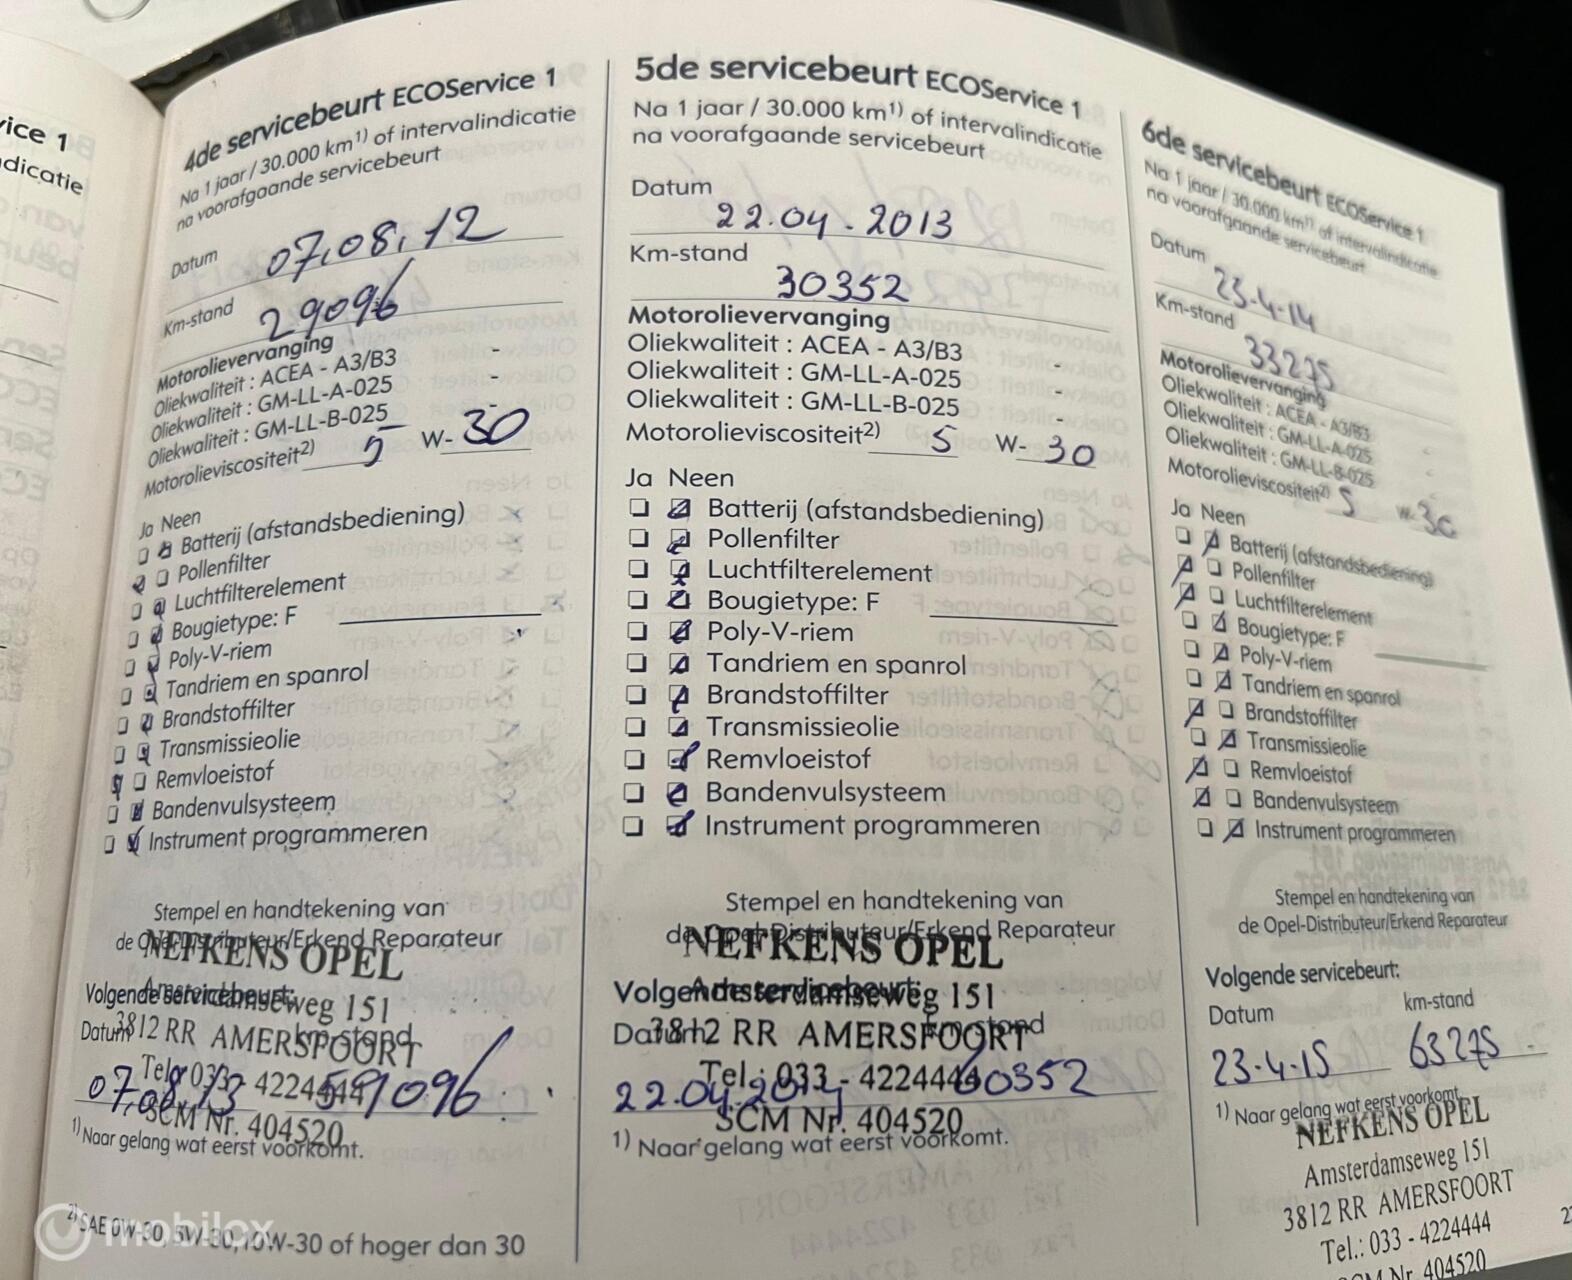 ice 1
dicatie
4de servicebeurt ECOService 1
Na 1 jaar / 30.000 km1) of intervalindicatie
na voorafgaande servicebeurt
Datum 07.08.12
Km-stand 29096
Motorolievervanging
Oliekwaliteit : ACEA - A3/B3 -
Oliekwaliteit : GM-LL-A-025 -
Oliekwaliteit : GM-LL-B-025 -
Motorolieviscositeit2) 5 W- 30
Ja Neen
Batterij (afstandsbediening)
Pollenfilter
Luchtfilterelement
Bougietype: F
Poly-V-riem
Tandriem en spanrol
Brandstoffilter
Transmissieolie
Remvloeistof
Bandenvulsysteem
Instrument programmeren
Stempel en handtekening van
de Opel-Distributeur/Erkend Reparateur
NEFKENS OPEL
Volgende servicebeurt:
Amsterdamseweg 151
Datum km-stand
3812 RR AMERSFOORT
Tel.: 033 - 4224444
07.08.13 59096
SCM Nr. 404520
1) Naar gelang wat eerst voorkomt.
2) SAE 0W-30, 5W-30, 10W-30 of hoger dan 30
mobilox
5de servicebeurt ECOService 1
Na 1 jaar / 30.000 km1) of intervalindicatie
na voorafgaande servicebeurt
Datum
22.04.2013
Km-stand
30352
Motorolievervanging
Oliekwaliteit : ACEA - A3/B3 -
Oliekwaliteit : GM-LL-A-025 -
Oliekwaliteit : GM-LL-B-025 -
Motorolieviscositeit2) 5 W- 30
Ja Neen
Batterij (afstandsbediening)
Pollenfilter
Luchtfilterelement
Bougietype: F
Poly-V-riem
Tandriem en spanrol
Brandstoffilter
Transmissieolie
Remvloeistof
Bandenvulsysteem
Instrument programmeren
Stempel en handtekening van
de Opel-Distributeur/Erkend Reparateur
NEFKENS OPEL
Volgende servicebeurt:
Amsterdamseweg 151
Datum km-stand
3812 RR AMERSFOORT
Tel.: 033 - 4224444
22.04.2014 60352
SCM Nr. 404520
1) Naar gelang wat eerst voorkomt.
6de servicebeurt ECOService 1
Na 1 jaar / 30.000 km1) of intervalindicatie
na voorafgaande servicebeurt
Datum 23-4-14
Km-stand 33275
Motorolievervanging
Oliekwaliteit : ACEA - A3/B3
Oliekwaliteit : GM-LL-A-025
Oliekwaliteit : GM-LL-B-025
Motorolieviscositeit2) 5 W- 30
Ja Neen
Batterij (afstandsbediening)
Pollenfilter
Luchtfilterelement
Bougietype: F
Poly-V-riem
Tandriem en spanrol
Brandstoffilter
Transmissieolie
Remvloeistof
Bandenvulsysteem
Instrument programmeren
Stempel en handtekening van
de Opel-Distributeur/Erkend Reparateur
Volgende servicebeurt:
Datum km-stand
23-4-15 63275
1) Naar gelang wat eerst voorkomt.
NEFKENS OPEL
Amsterdamseweg 151
3812 RR AMERSFOORT
Tel.: 033 - 4224444
SCM Nr. 404520